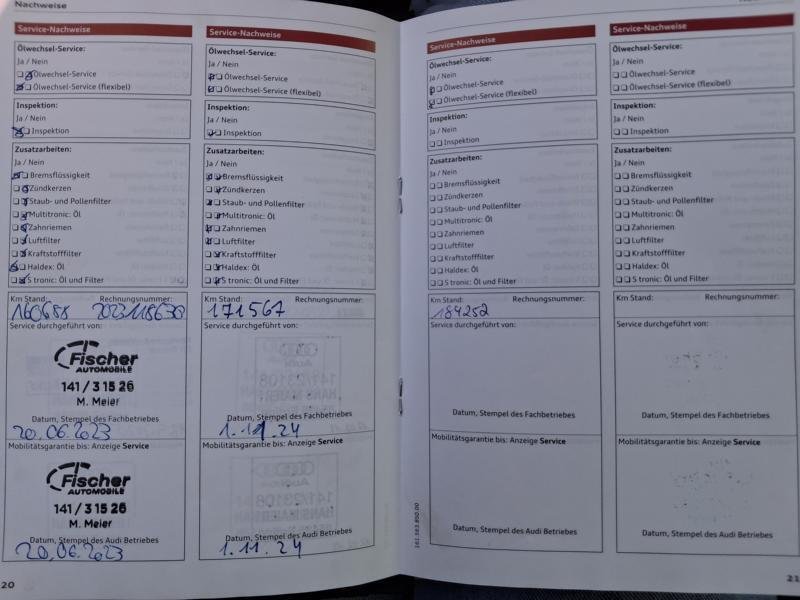 Nachweise
Service-Nachweise
Ölwechsel-Service:
Ja / Nein
Ölwechsel-Service
Ölwechsel-Service (flexibel)
Inspektion:
Ja / Nein
Inspektion
Zusatzarbeiten:
Ja / Nein
Bremsflüssigkeit
Zündkerzen
Staub- und Pollenfilter
Multitronic: Öl
Zahnriemen
Luftfilter
Kraftstofffilter
Haldex: Öl
S tronic: Öl und Filter
Km Stand: Rechnungsnummer:
160688 2023118630
Service durchgeführt von:
Fischer
AUTOMOBILE
141 / 3 15 26
M. Meier
Datum, Stempel des Fachbetriebes
20.06.2023
Mobilitätsgarantie bis: Anzeige Service
Fischer
AUTOMOBILE
141 / 3 15 26
M. Meier
Datum, Stempel des Audi Betriebes
20.06.2023
20
Service-Nachweise
Ölwechsel-Service:
Ja / Nein
Ölwechsel-Service
Ölwechsel-Service (flexibel)
Inspektion:
Ja / Nein
Inspektion
Zusatzarbeiten:
Ja / Nein
Bremsflüssigkeit
Zündkerzen
Staub- und Pollenfilter
Multitronic: Öl
Zahnriemen
Luftfilter
Kraftstofffilter
Haldex: Öl
S tronic: Öl und Filter
Km Stand: Rechnungsnummer:
171567
Service durchgeführt von:
Datum, Stempel des Fachbetriebes
1.11.24
Mobilitätsgarantie bis: Anzeige Service
Datum, Stempel des Audi Betriebes
1.11.24
Service-Nachweise
Ölwechsel-Service:
Ja / Nein
Ölwechsel-Service
Ölwechsel-Service (flexibel)
Inspektion:
Ja / Nein
Inspektion
Zusatzarbeiten:
Ja / Nein
Bremsflüssigkeit
Zündkerzen
Staub- und Pollenfilter
Multitronic: Öl
Zahnriemen
Luftfilter
Kraftstofffilter
Haldex: Öl
S tronic: Öl und Filter
Km Stand: Rechnungsnummer:
184252
Service durchgeführt von:
Datum, Stempel des Fachbetriebes
Mobilitätsgarantie bis: Anzeige Service
Datum, Stempel des Audi Betriebes
161.563.850.00
Service-Nachweise
Ölwechsel-Service:
Ja / Nein
Ölwechsel-Service
Ölwechsel-Service (flexibel)
Inspektion:
Ja / Nein
Inspektion
Zusatzarbeiten:
Ja / Nein
Bremsflüssigkeit
Zündkerzen
Staub- und Pollenfilter
Multitronic: Öl
Zahnriemen
Luftfilter
Kraftstofffilter
Haldex: Öl
S tronic: Öl und Filter
Km Stand: Rechnungsnummer:
Service durchgeführt von:
Datum, Stempel des Fachbetriebes
Mobilitätsgarantie bis: Anzeige Service
Datum, Stempel des Audi Betriebes
21